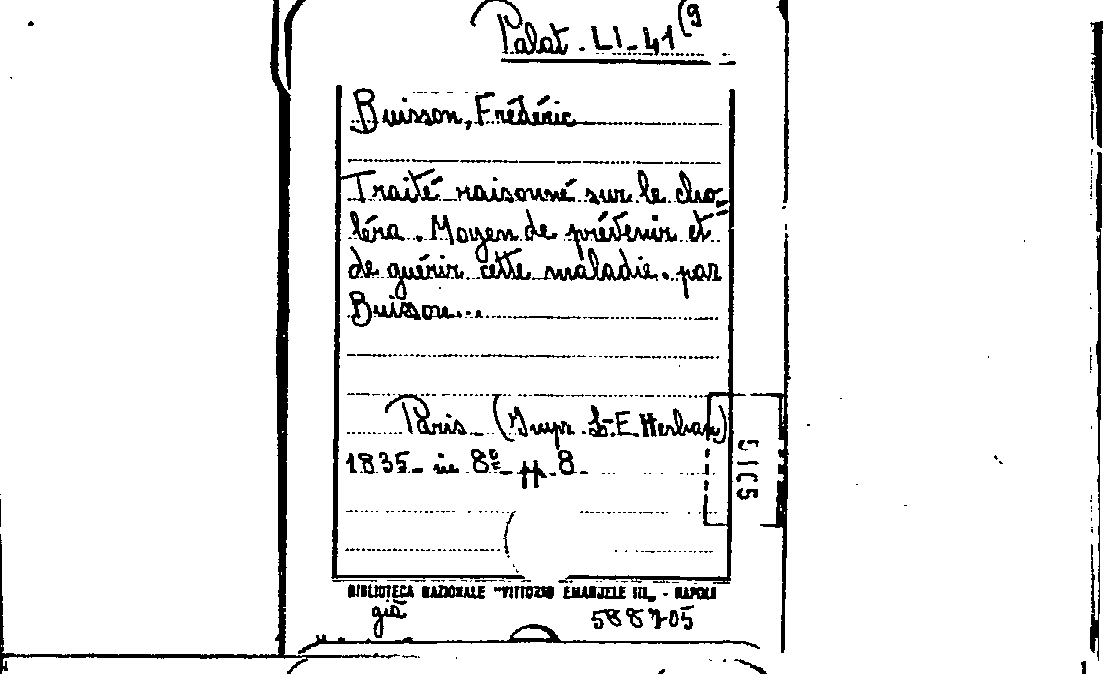 Palat. LI-41(9
Buisson, Frédéric
Traité raisonné sur le cho=
léra. Moyen de prévenir et
de guérir cette maladie. par
Buisson...
Paris (Impr. L-E. Herhan)
1835- in 8º- pp. 8-
5105
BIBLIOTECA NAZIONALE "VITTORIO EMANUELE III" - NAPOLI
già
588705